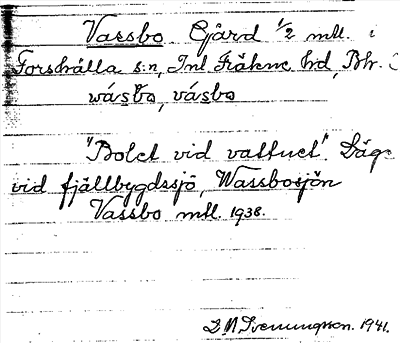 Vassbo Gård 1/2 mtl. i
Forshälla s:n, Inl Fräkne hd, Bhl.
wásbo, vásbo
"Bolet vid vattnet". Läge
vid fjällbygdssjö, Wassbosjön
Vassbo mtl. 1938.
Svenungsson. 1941.